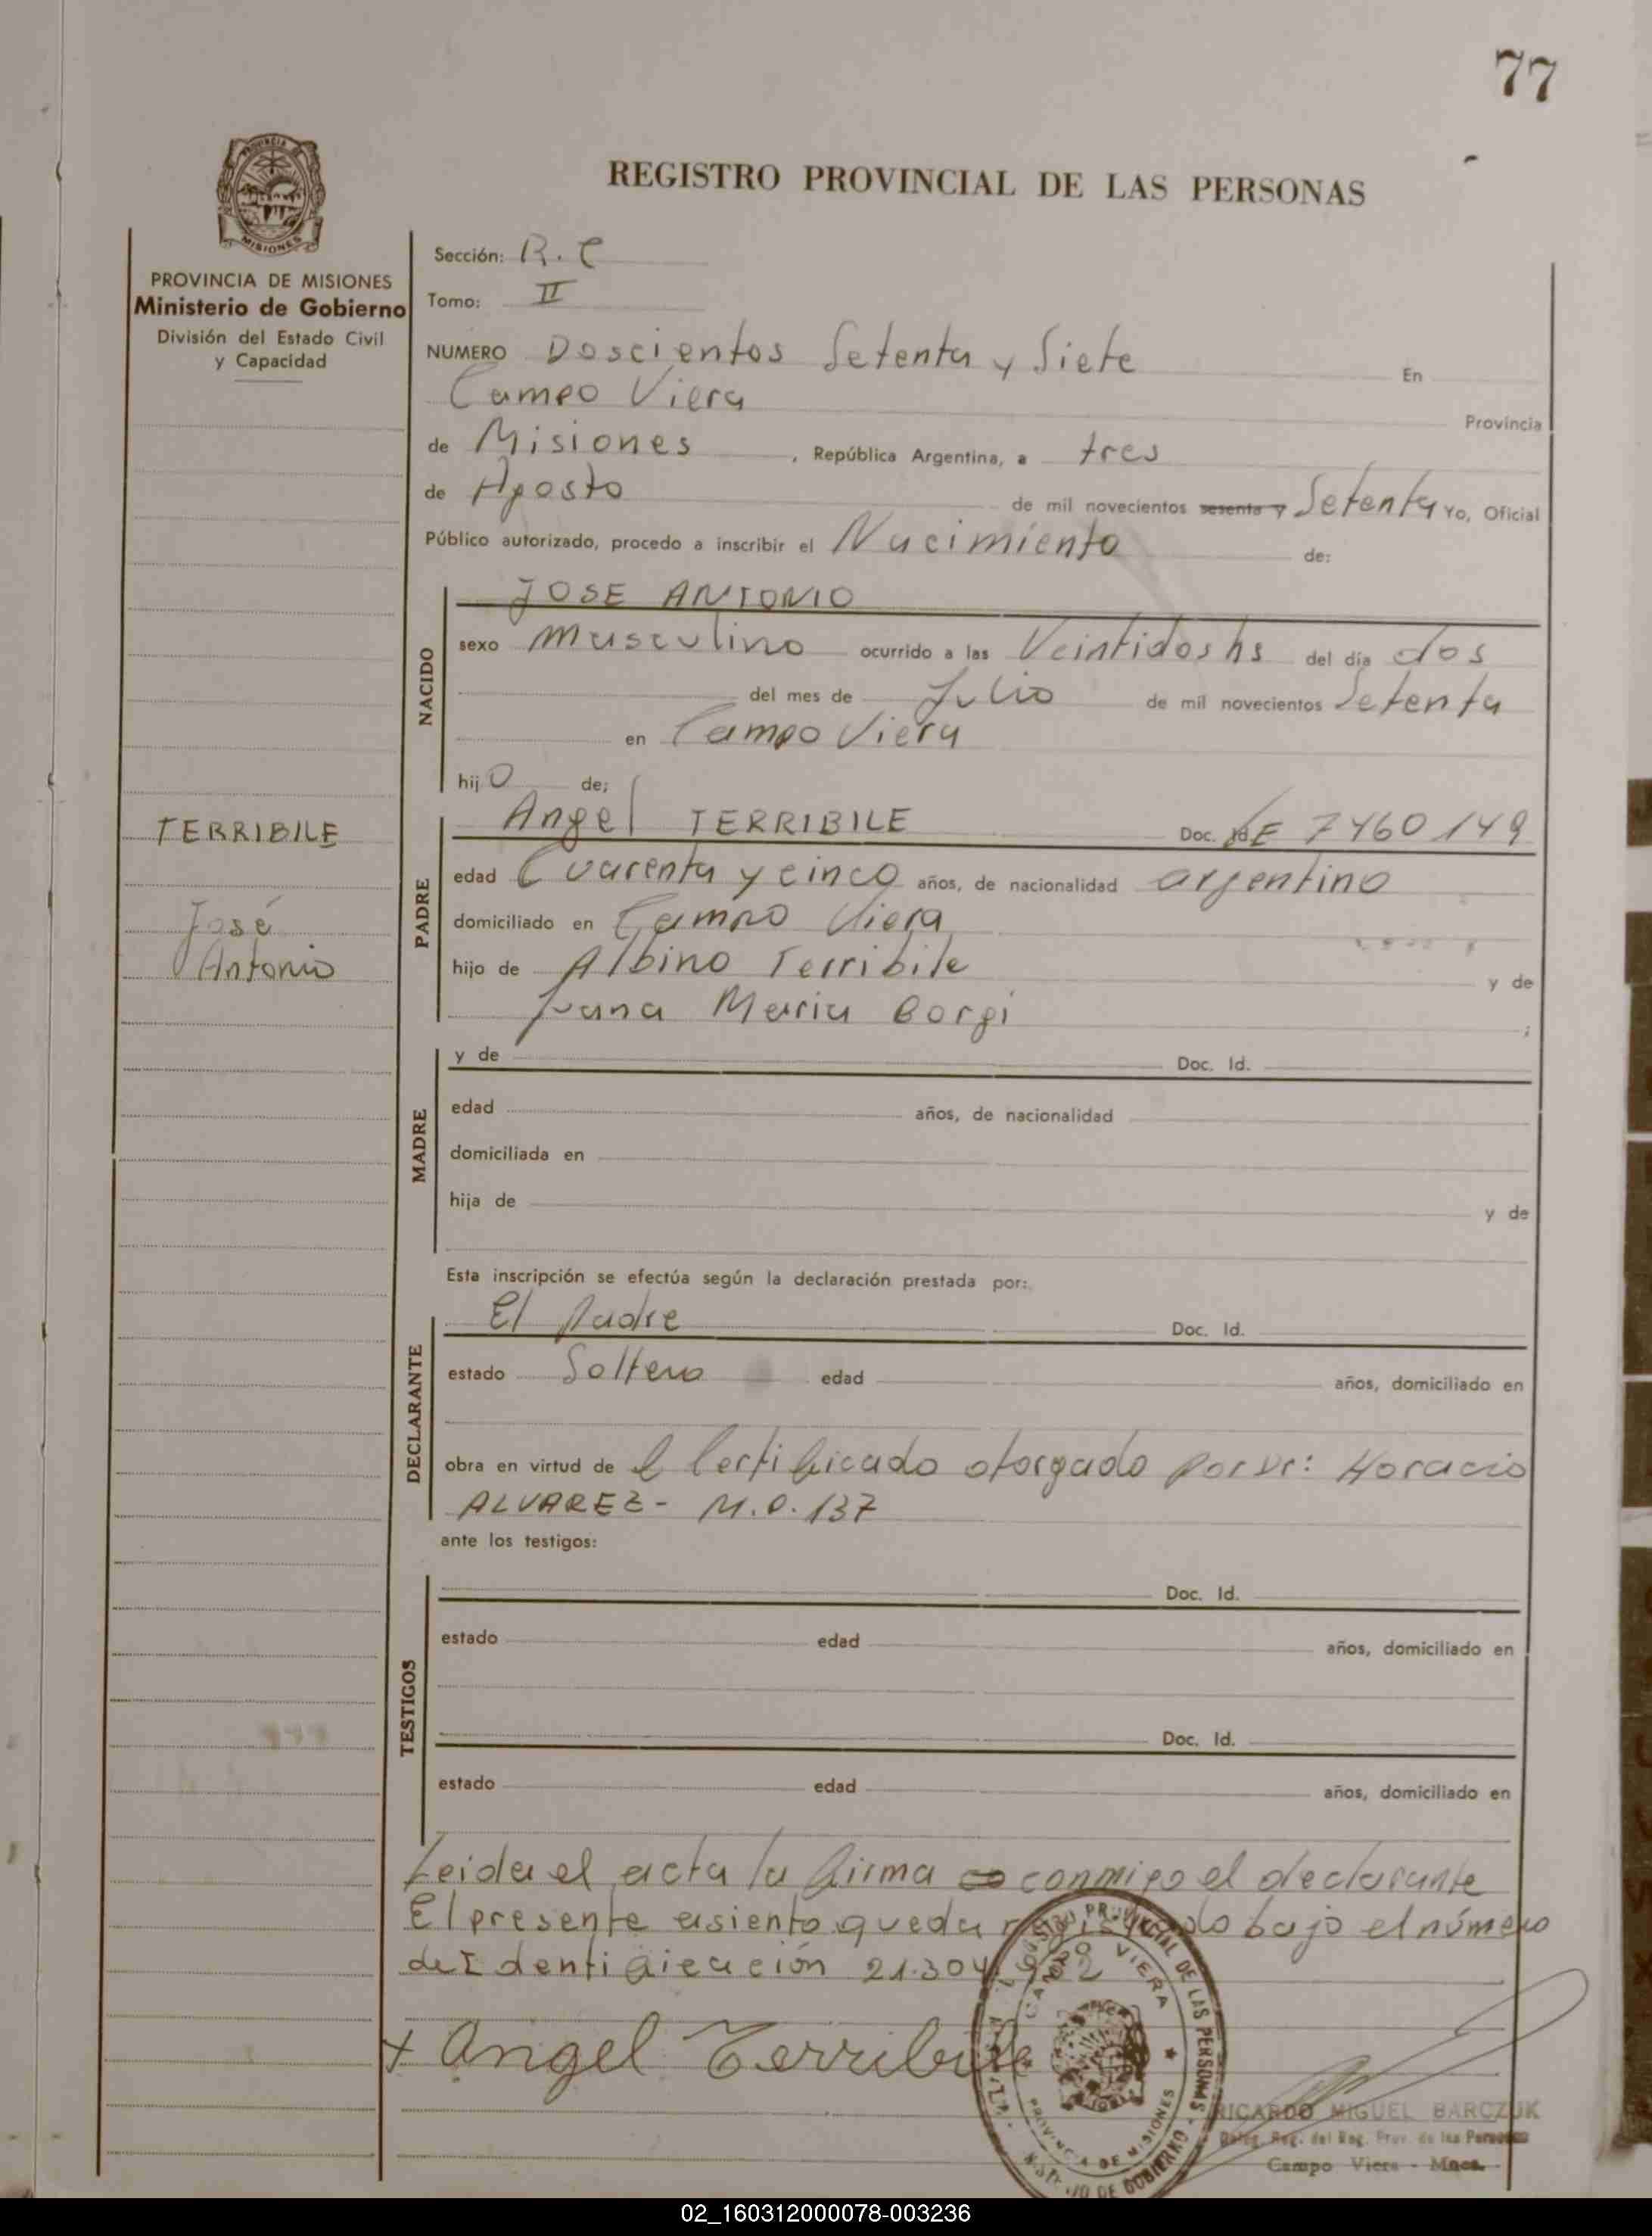 77
PROVINCIA DE
MISIONES
REGISTRO PROVINCIAL DE LAS PERSONAS
PROVINCIA DE MISIONES
Ministerio de Gobierno
División del Estado Civil
y Capacidad
Sección: R. C
Tomo: II
NUMERO Doscientos Setenta y Siete En
Campo Viera Provincia
de Misiones, República Argentina, a tres
de Agosto de mil novecientos sesenta y Setenta Yo, Oficial
Público autorizado, procedo a inscribir el Nacimiento de:
NACIDO
JOSE ANTONIO
sexo masculino ocurrido a las Veintidos hs del día dos
del mes de Julio de mil novecientos Setenta
en Campo Viera
hijo de;
TERRIBILE
José
Antonio
PADRE
Angel TERRIBILE Doc. Id. LE 7460149
edad Cuarenta y cinco años, de nacionalidad argentino
domiciliado en Campo Viera
hijo de Albino Terribile y de
Juana Maria Borgi ;
MADRE
y de Doc. Id.
edad años, de nacionalidad
domiciliada en
hija de y de
Esta inscripción se efectúa según la declaración prestada por:
DECLARANTE
El Padre Doc. Id.
estado Soltero edad años, domiciliado en
obra en virtud de l Certificado otorgado por Dr: Horacio
ALVAREZ - M.P. 137
ante los testigos:
TESTIGOS
Doc. Id.
estado edad años, domiciliado en
Doc. Id.
estado edad años, domiciliado en
Leida el acta la firma conmigo el declarante
El presente asiento queda registrado bajo el número
de Identificación 21.304.
+ Angel Terribile
REGISTRO PROVINCIAL DE LAS PERSONAS
CAMPO VIERA
PROVINCIA DE MISIONES
MINISTERIO DE GOBIERNO
RICARDO MIGUEL BARCZUK
Deleg. Reg. del Reg. Prov. de las Personas
Campo Viera - Mnes.
02_160312000078-003236